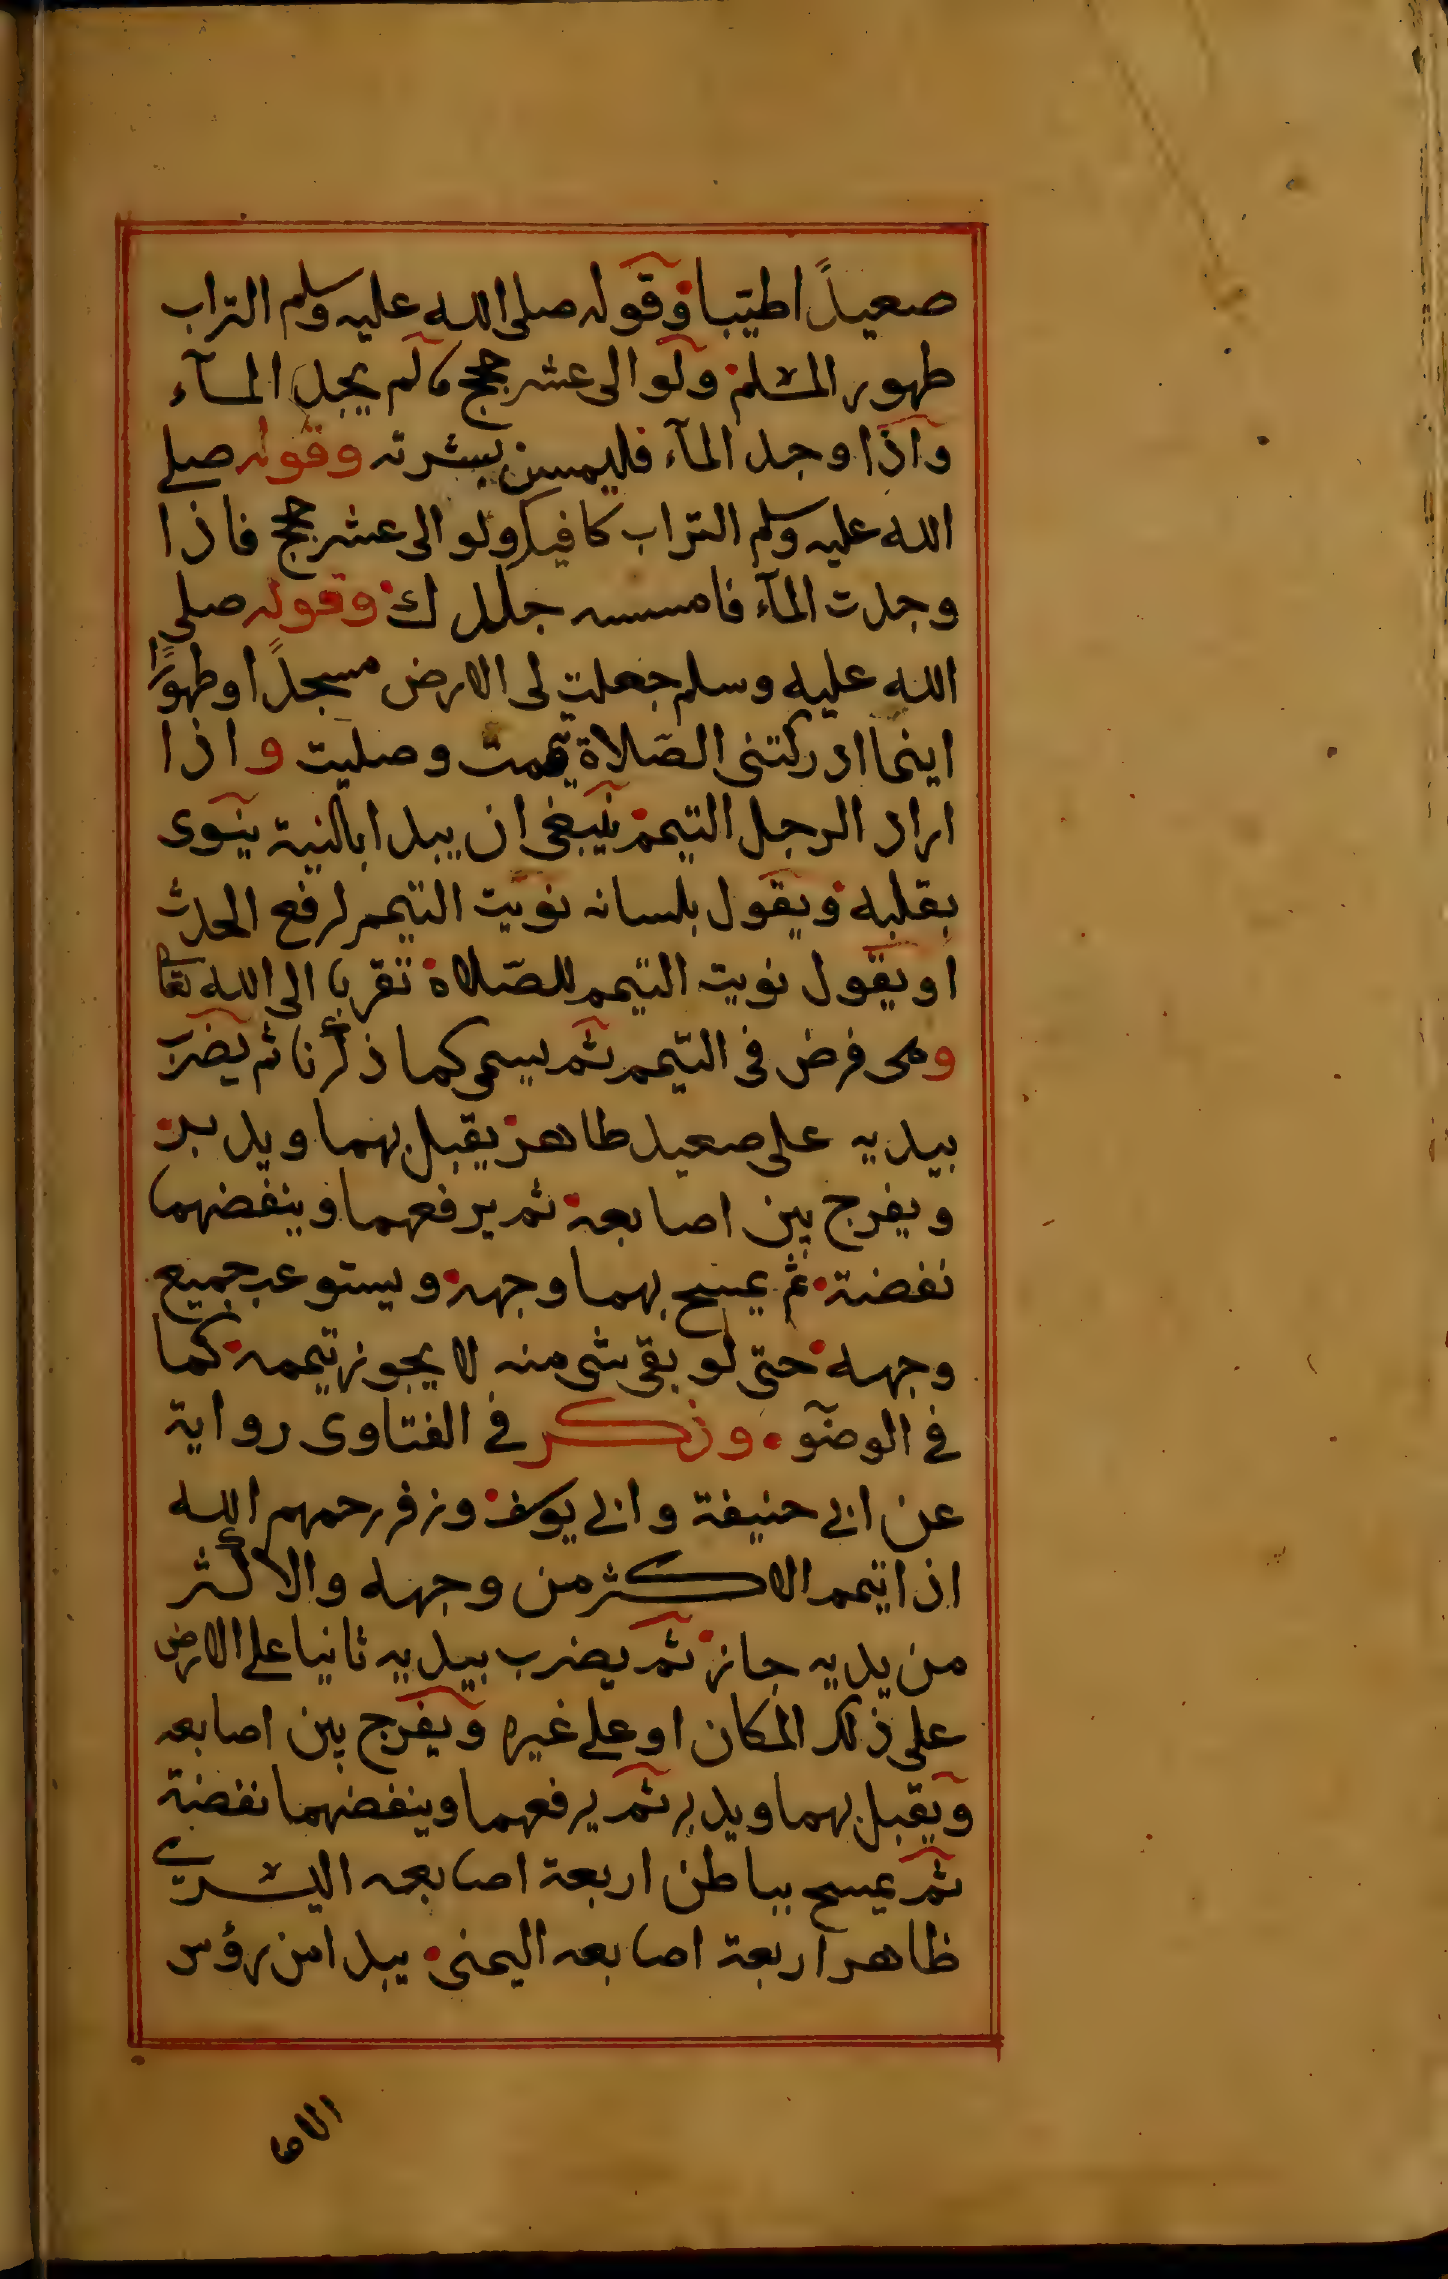 صعيدًا طيّبا وقوله صلى الله عليه وسلم التراب
طهور المسلم ولو الى عشر حجج مالم يجد المآء
واذا وجد المآء فليمس بشرته وقوله صلى
الله عليه وسلم التراب كافيك ولو الى عشر حجج فاذا
وجدت المآء فامسسه جلدك وقوله صلى
الله عليه وسلم جعلت لى الارض مسجدًا وطهورًا
اينما ادركتنى الصّلاة تيممت وصليت واذا
اراد الرجل التيمم ينبغى ان يبدا بالنية ينوى
بقلبه ويقول بلسانه نويت التيمم لرفع الحدث
او يقول نويت التيمم للصّلاة تقربا الى الله تعا
وهى فرض فى التيمم ثم يسمى كما ذكرنا ثم يضرب
بيديه على صعيد طاهر يقبل بهما ويدبر
ويفرج بين اصابعه ثم يرفعهما وينفضهما
نفضة ثم يمسح بهما وجهه ويستوعب جميع
وجهه حتى لو بقى شى منه لا يجوز تيممه كما
فى الوضوٓ وذكر فى الفتاوى رواية
عن ابى حنيفة وابى يوسف وزفر رحمهم الله
اذا تيمم الاكثر من وجهه والاكثر
من يديه جاز ثم يضرب بيديه ثانيا على الارض
على ذلك المكان او على غيره ويفرج بين اصابعه
ويقبل بهما ويدبر ثم يرفعهما وينفضهما نفضة
ثم يمسح بباطن اربعة اصابعه اليسرى
ظاهر اربعة اصابعه اليمنى يبدا من رؤس